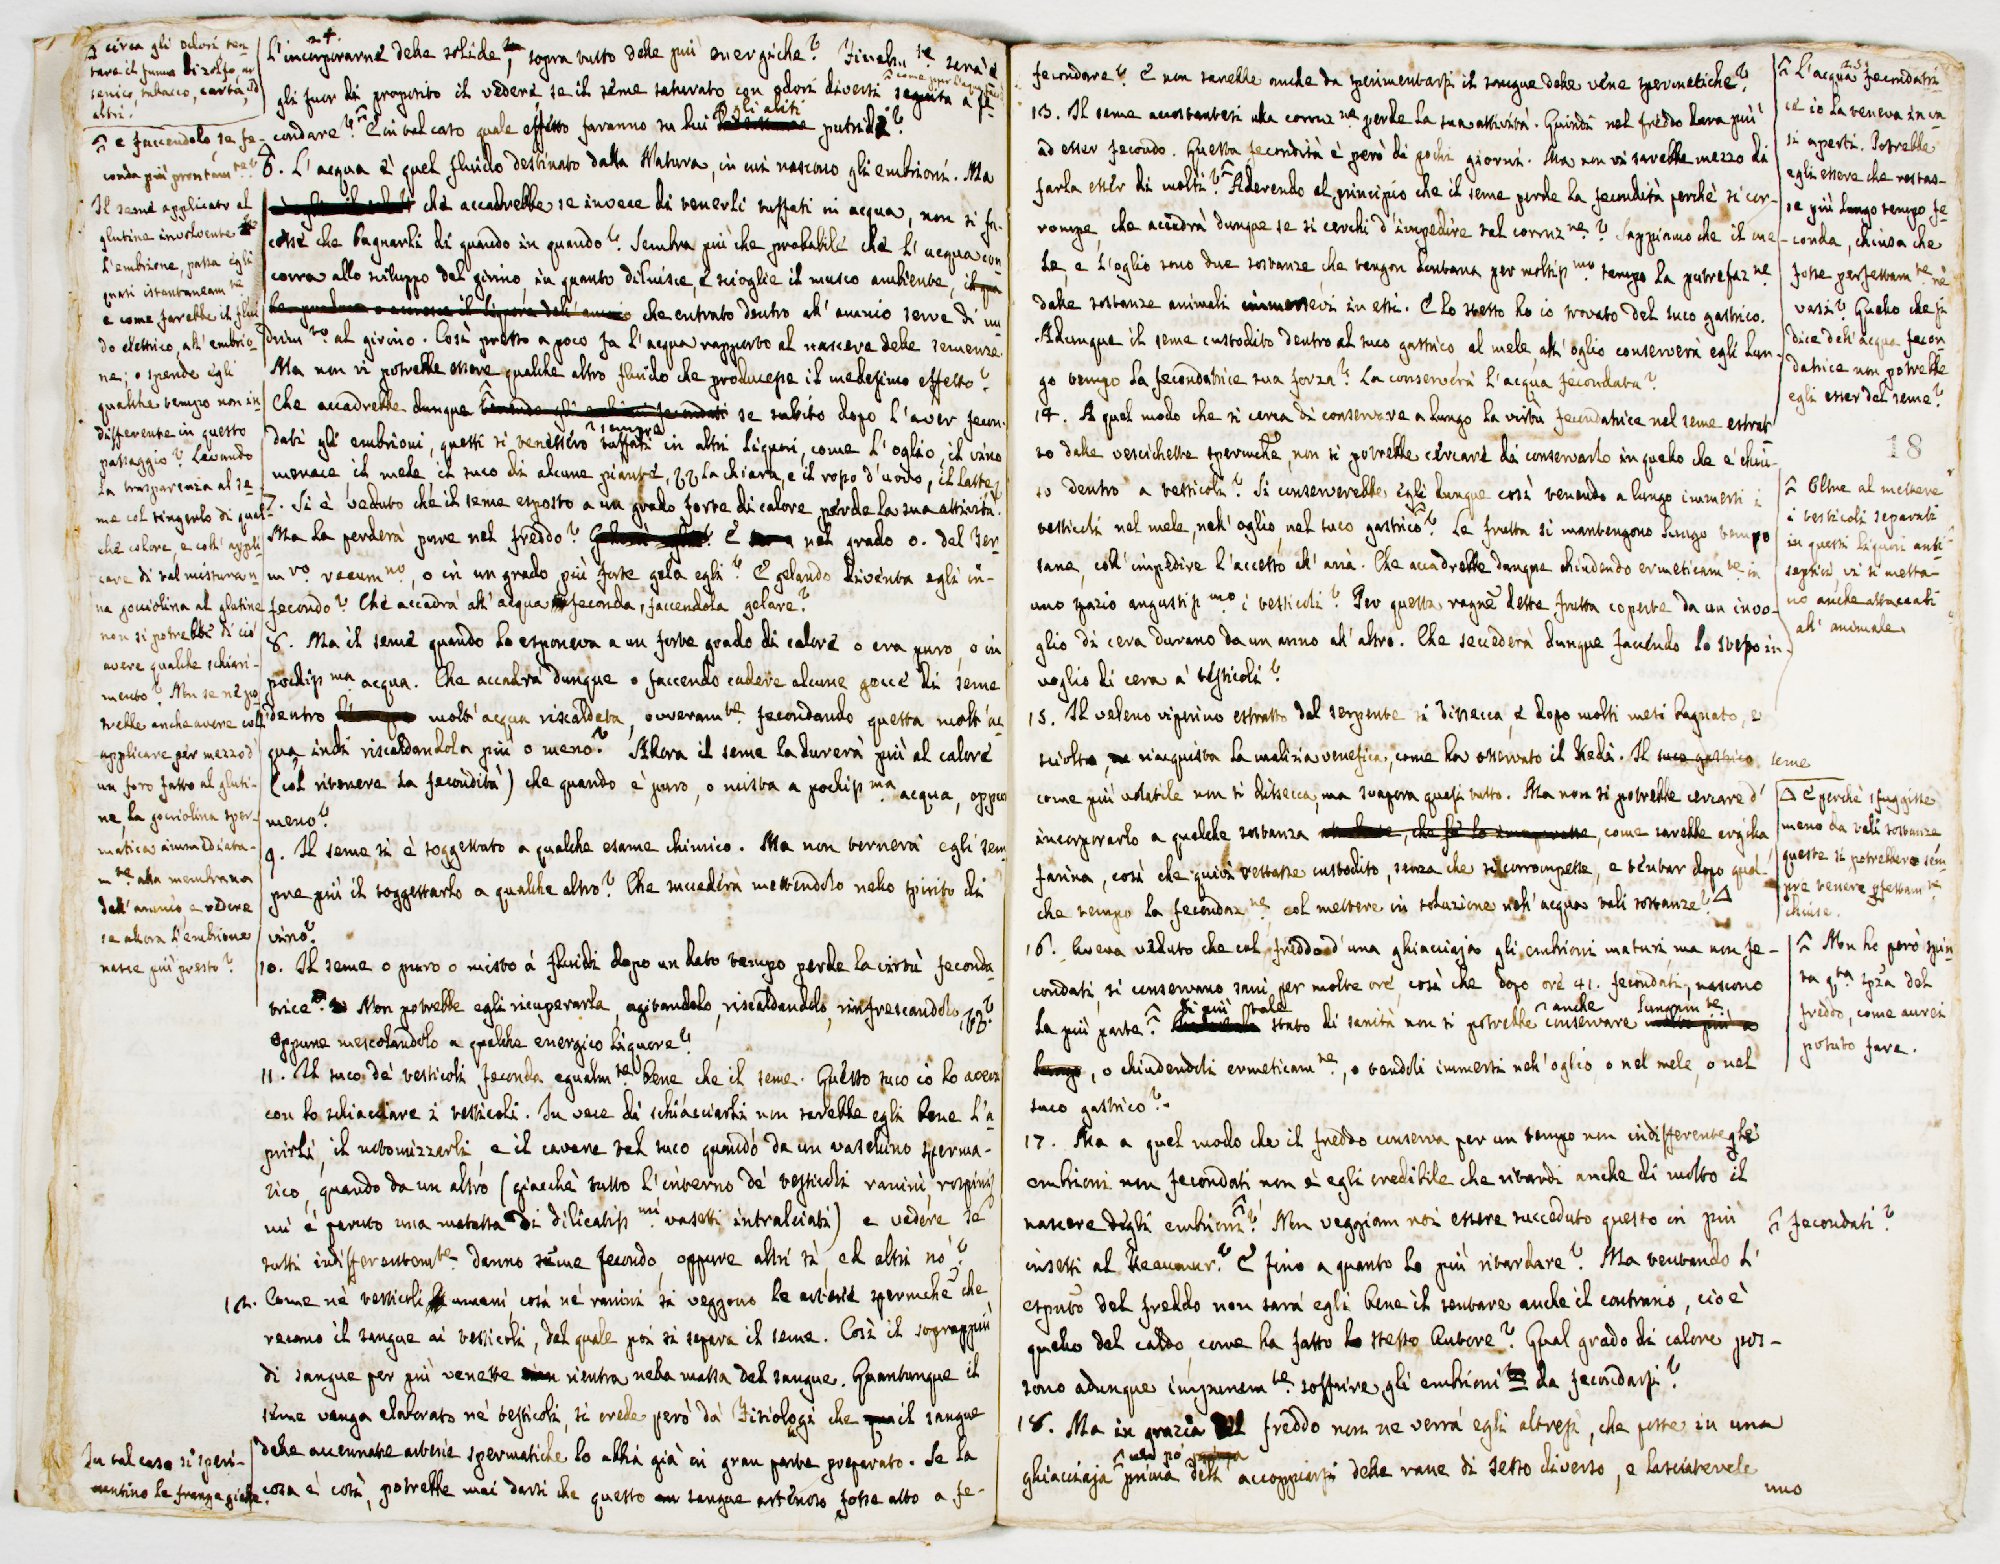 24.
L'incorporarne delle solide, sopra tutto delle più energiche? Finalm.te sarà
gli fuor di proposito il vedere, se il seme saturato con odori diversi seguita a fe-
condare? E in tal caso quale effetto faranno su lui gli aliti putridi?
6. L'acqua è quel fluido destinato dalla Natura, in cui nascono gli embrioni. Ma
che accadrebbe se invece di tenerli tuffati in acqua, non si fa-
cesse che bagnarli di quando in quando? Sembra più che probabile che l'acqua con
corra allo sviluppo del girino, in quanto diluisce, e scioglie il muco ambiente, il qua
che entrato dentro all'amnio serve di nu
drim.to al girino. Così presso a poco fa l'acqua rapporto al nascere delle semenze.
Ma non vi potrebbe essere qualche altro fluido che producesse il medesimo effetto?
Che accadrebbe dunque se subito dopo l'aver fecon-
dati gli embrioni, questi si tenessero sempre tuffati in altri liquori, come l'oglio, il vino
menace, il mele, il suco di alcune piante, la chiara, e il rosso d'uovo, il latte
7. Si è veduto che il seme esposto a un grado forte di calore perde la sua attività.
Ma la perderà pure nel freddo? E nel grado 0. del Ter-
m.ro reaum.no, o in un grado più forte gela egli? E gelando diventa egli in-
fecondo? Che accadrà all'acqua feconda, faccendola gelare?
8. Ma il seme quando lo esponeva a un forte grado di calore o era puro, o in
pochiss.ma acqua. Che accadrà dunque o faccendo cadere alcune gocce di seme
dentro molt'acqua riscaldata, ovveram.te fecondando questa molt'ac
qua, indi riscaldandola più o meno? Allora il seme la durerà più al calore
(col ritenere la fecondità) che quando è puro, o mista a pochiss.ma acqua, oppur
meno?
9. Il seme si è soggettato a qualche esame chimico. Ma non tornerà egli sem
pre più il soggettarlo a qualche altro? Che succederà mettendolo nello spirito di
vino?
10. Il seme o puro o misto a fluidi dopo un dato tempo perde la virtù feconda
trice. Non potrebbe egli ricuperarla, agitandolo, riscaldandolo, rinfrescandolo,
oppure mescolandolo a qualche energico liquore?
11. Il suco de' testicoli feconda egualm.te bene che il seme. Questo suco io lo aveva
con lo schiacciare i testicoli. In vece di schiacciarli non sarebbe egli bene l'a
prirli, il notomizzarli, e il cavare tal suco quando da un vasellino sperma-
tico, quando da un altro (giacchè tutto l'interno de' testicoli ranini, rospini
mi è paruto una matassa di dilicatiss.mi vasetti intralciati) e vedere se
tutti indifferentem.te danno seme fecondo, oppure altri sì, ed altri nò?
12. Come nè testicoli umani, così nè ranini si veggono le arterie spermche che
recano il sangue ai testicoli, del quale poi si separa il seme. Così il soprappiù
di sangue per più venette rientra nella massa del sangue. Quantunque il
seme venga elaborato nè testicoli, si crede però dà Fisiologi che il sangue
delle accennate arterie spermatiche lo abbia già in gran parte preparato. Se la
cosa è così, potrebbe mai darsi che questo sangue arterioso fosse atto a fe-
circa gli odori ten-
tare il fumo di zolfo, ar
senico, tabacco, carta, ed
altri.
e faccendolo se fe-
conda più prontam.te?
Il seme applicato al
glutine involvente
l'embrione, passa egli
quasi istantaneam.te
e come farebbe il flui
do elettrico, all'embrio-
ne; o spende egli
qualche tempo non in
differente in questo
passaggio? Levando
la trasparenza al se-
me col tingerlo di qual-
che colore, e coll'appli
care di tal mistura u
na gocciolina al glutine
non si potrebbe di ciò
avere qualche schiari-
mento? Non se ne po
trebbe anche avere coll'
applicare per mezzo d'
un foro fatto al gluti-
ne, la gocciolina sper-
matica immediata-
m.te alla membrana
dell'amnio, e vedere
se allora l'embrione
nasce più presto?
In tal caso si speri-
mentino le frange gialle.
fecondare? E non sarebbe anche da sperimentarsi il sangue delle vene spermatiche?
13. Il seme accostantesi alla corruz.ne perde la sua attività. Quindi nel freddo dura più
ad esser fecondo. Questa fecondità è però di pochi giorni. Ma non vi sarebbe mezzo di
farla esser di molti? Aderendo al principio che il seme perde la fecondità perchè si cor-
rompe, che accadrà dunque se si cerchi d'impedire tal corruz.ne? Sappiamo che il me
le, e l'oglio sono due sostanze che tengon lontana per moltiss.mo tempo la putrefaz.ne
dalle sostanze animali immersevi in essi. E lo stesso ho io trovato del suco gastrico.
Adunque il seme custodito dentro al suco gastrico al mele, all'oglio conserverà egli lun
go tempo la fecondatrice sua forza? La conserverà l'acqua fecondata?
14. A quel modo che si cerca di conservare a lungo la virtù fecondatrice nel seme estrat
to dalle vescichette spermche, non si potrebbe cercare di conservarlo in quello che è chiu-
so dentro a testicoli? Si conserverebbe egli dunque così tenendo a lungo immersi i
testicoli nel mele, nell'oglio, nel suco gastrico? Le frutta si mantengono lungo tempo
sane, coll'impedire l'accesso all'aria. Che accadrebbe dunque chiudendo ermeticam.te in
uno spazio angustiss.mo i testicoli? Per questa ragne dette frutta coperte da un invo-
glio di cera durano da un anno all'altro. Che succederà dunque facendo lo stesso in-
voglio di cera à testicoli?
15. Il veleno viperino estratto dal serpente si dissecca, e dopo molti mesi bagnato, e
sciolto, riacquista la malizia venefica, come ha osservato il Redi. Il suco gastrico seme
come più volatile non si dissecca, ma svapora quasi tutto. Ma non si potrebbe cercare d'
incorporarlo a qualche sostanza, come sarebbe creta
farina, così che quivi restasse custodito, senza che si corrompesse, e tentar dopo qual-
che tempo la fecondaz.ne col mettere in soluzione nell'acqua tali sostanze?
16. Aveva veduto che col freddo d'una ghiacciaja gli embrioni maturi ma non fe-
condati, si conservano sani per molte ore, così che dopo ore 41. fecondati, nascono
la più parte. Di più tale stato di sanità non si potrebbe anche conservare lungam.te
, o chiudendoli ermeticam.te, o tendoli immersi nell'oglio, o nel mele, o nel
suco gastrico?
17. Ma a quel modo che il freddo conserva per un tempo non indifferente gli
embrioni non fecondati non è egli credibile che ritardi anche di molto il
nascere degli embrioni? Non veggiam noi essere succeduto questo in più
insetti al Reaumur? E fino a quanto lo può ritardare? Ma tentando l'
espto del freddo non sarà egli bene il tentare anche il contrario, cioè
quello del caldo, come ha fatto lo stesso Autore? Qual grado di calore pos-
sono adunque impunem.te soffrire gli embrioni da fecondarsi?
18. Ma in grazia del freddo non ne verrà egli altresì, che poste in una
ghiacciaja un pò prima dell'accoppiarsi delle rane di sesso diverso, e lasciatevele
uno
25.
L'acqua fecondatri
ce io la teneva in va
si aperti. Potrebbe
egli essere che restas-
se più lungo tempo fe
conda, chiusa che
fosse perfettam.te ne
vasi? Quello che si
dice dell'acqua fecon-
datrice non potrebbe
egli esser del seme?
18
Oltre al mettere
i testicoli separati
in questi liquori anti
septici, vi si metta-
no anche attaccati
all'animale.
E perchè sfuggisse
meno da tali sostanze
queste si potrebbero sem
pre tenere pfettam.te
chiuse.
Non ho però spin
ta q.ta spza del
freddo, come avrei
potuto fare.
fecondati?